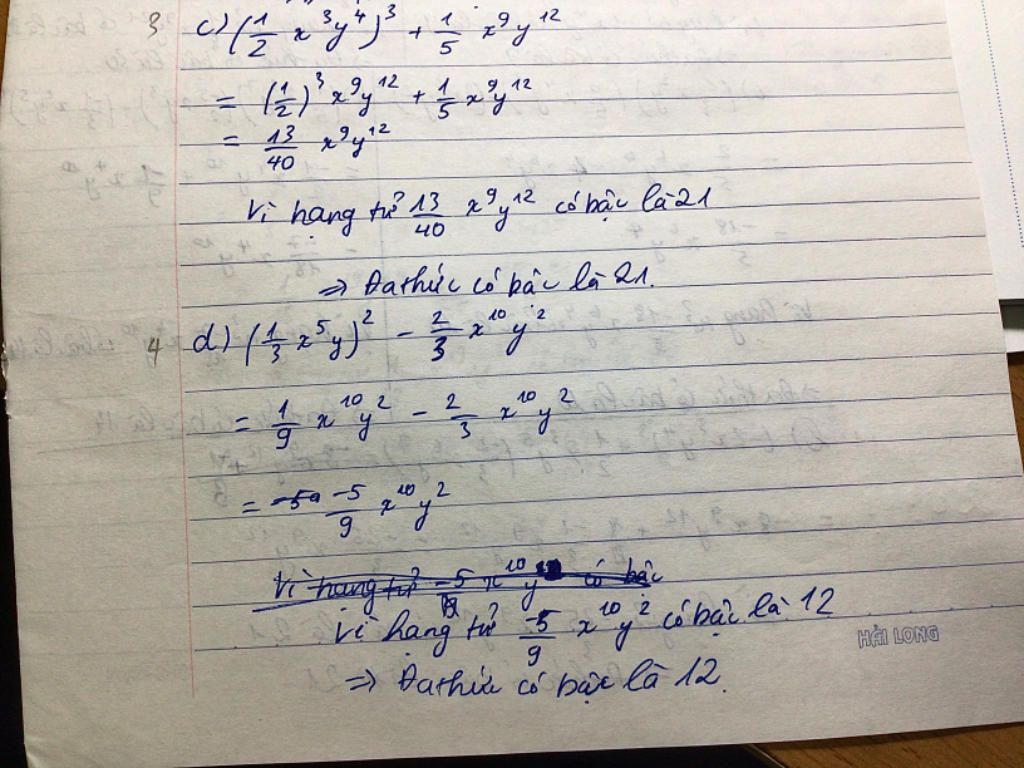 3 c) (1/2 x³y⁴)³ + 1/5 x⁹y¹²
= (1/2)³ x⁹y¹² + 1/5 x⁹y¹²
= 13/40 x⁹y¹²
Vì hạng tử 13/40 x⁹y¹² có bậc là 21
⇒ Đa thức có bậc là 21.
4 d) (1/3 x⁵y)² - 2/3 x¹⁰y²
= 1/9 x¹⁰y² - 2/3 x¹⁰y²
= -5/9 x¹⁰y²
Vì hạng tử -5 x¹⁰y có bậc
Vì hạng tử -5/9 x¹⁰y² có bậc là 12
HẢI LONG
⇒ Đa thức có bậc là 12.